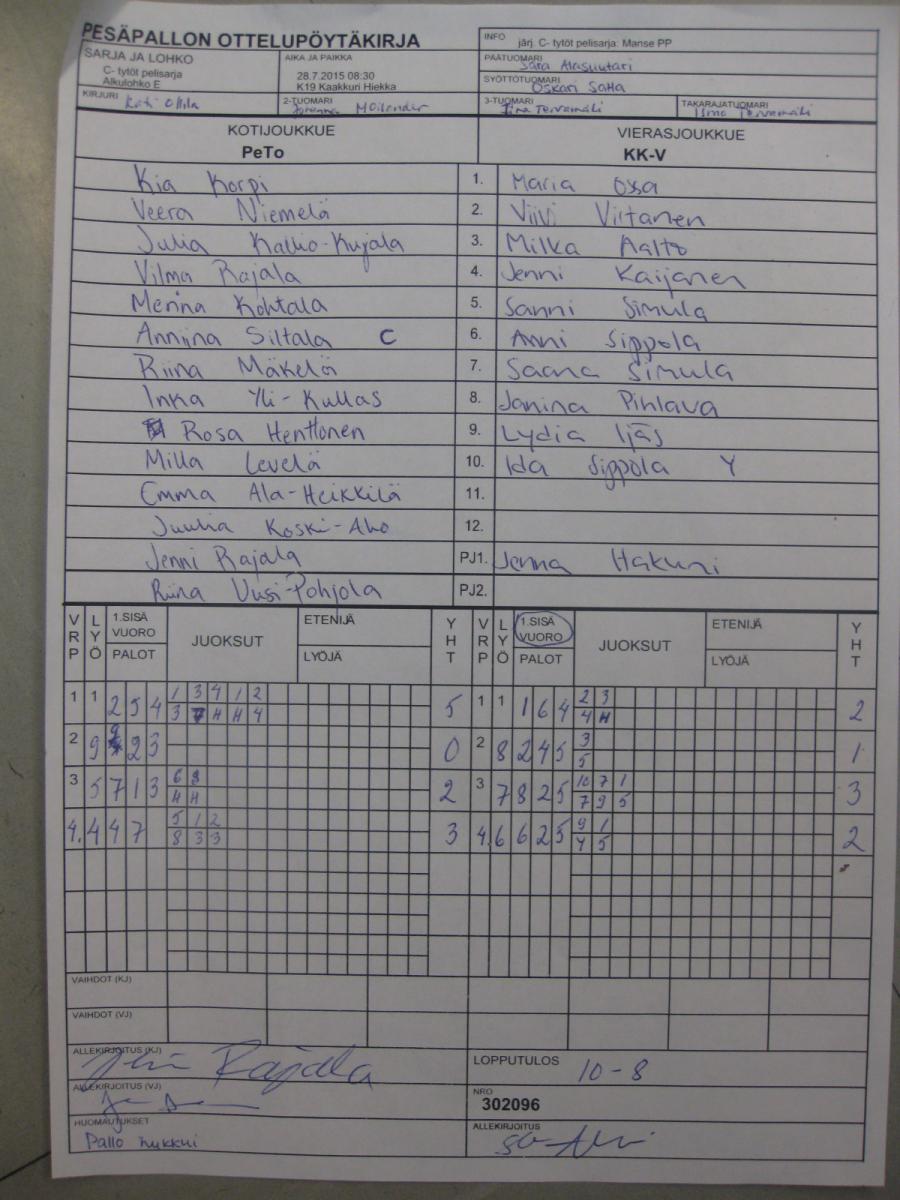 PESÄPALLON OTTELUPÖYTÄKIRJA
INFO järj. C- tytöt pelisarja: Manse PP
SARJA JA LOHKO
C- tytöt pelisarja
Alkulohko E
AIKA JA PAIKKA
28.7.2015 08:30
K19 Kaakkuri Hiekka
PÄÄTUOMARI Sara Alasuutari
SYÖTTÖTUOMARI Oskari Saha
KIRJURI Kati Ollila
2-TUOMARI Moilander
3-TUOMARI Iina Tervamäki
TAKARAJATUOMARI Ilmo Tervamäki
KOTIJOUKKUE
PeTo
VIERASJOUKKUE
KK-V
Kia Korpi 1. Maria Ossa
Veera Niemelä 2. Viivi Virtanen
Julia Kallio-Kujala 3. Milka Aalto
Vilma Rajala 4. Jenni Kaijanen
Menna Kohtala 5. Sanni Simula
Anniina Siltala C 6. Anni Sippola
Riina Mäkelä 7. Saana Simula
Inka Yli-Kullas 8. Janina Pihlava
Rosa Henttonen 9. Lydia Ijäs
Milla Levelä 10. Ida Sippola Y
Emma Ala-Heikkilä 11.
Juulia Koski-Aho 12.
Jenni Rajala PJ1. Jenna Hakuni
Riina Uusi-Pohjola PJ2.
VRP LYÖ 1.SISÄ VUORO PALOT JUOKSUT ETENIJÄ LYÖJÄ YHT VRP LYÖ 1.SISÄ VUORO PALOT JUOKSUT ETENIJÄ LYÖJÄ YHT
1 1 2 5 4 1 3 4 1 2 5 1 1 1 6 4 2 3 2
3 7 H H 4 4 H
2 9 9 2 3 0 2 8 2 4 5 3 1
5
3 5 7 1 3 6 8 2 3 7 8 2 5 10 7 1 3
H H 7 9 5
4. 4 4 7 5 1 2 3 4. 6 6 2 5 9 1 2
8 3 3 4 5
VAIHDOT (KJ)
VAIHDOT (VJ)
ALLEKIRJOITUS (KJ) Jenni Rajala
LOPPUTULOS 10-8
ALLEKIRJOITUS (VJ)
NRO
302096
HUOMAUTUKSET
Pallo hukkui
ALLEKIRJOITUS